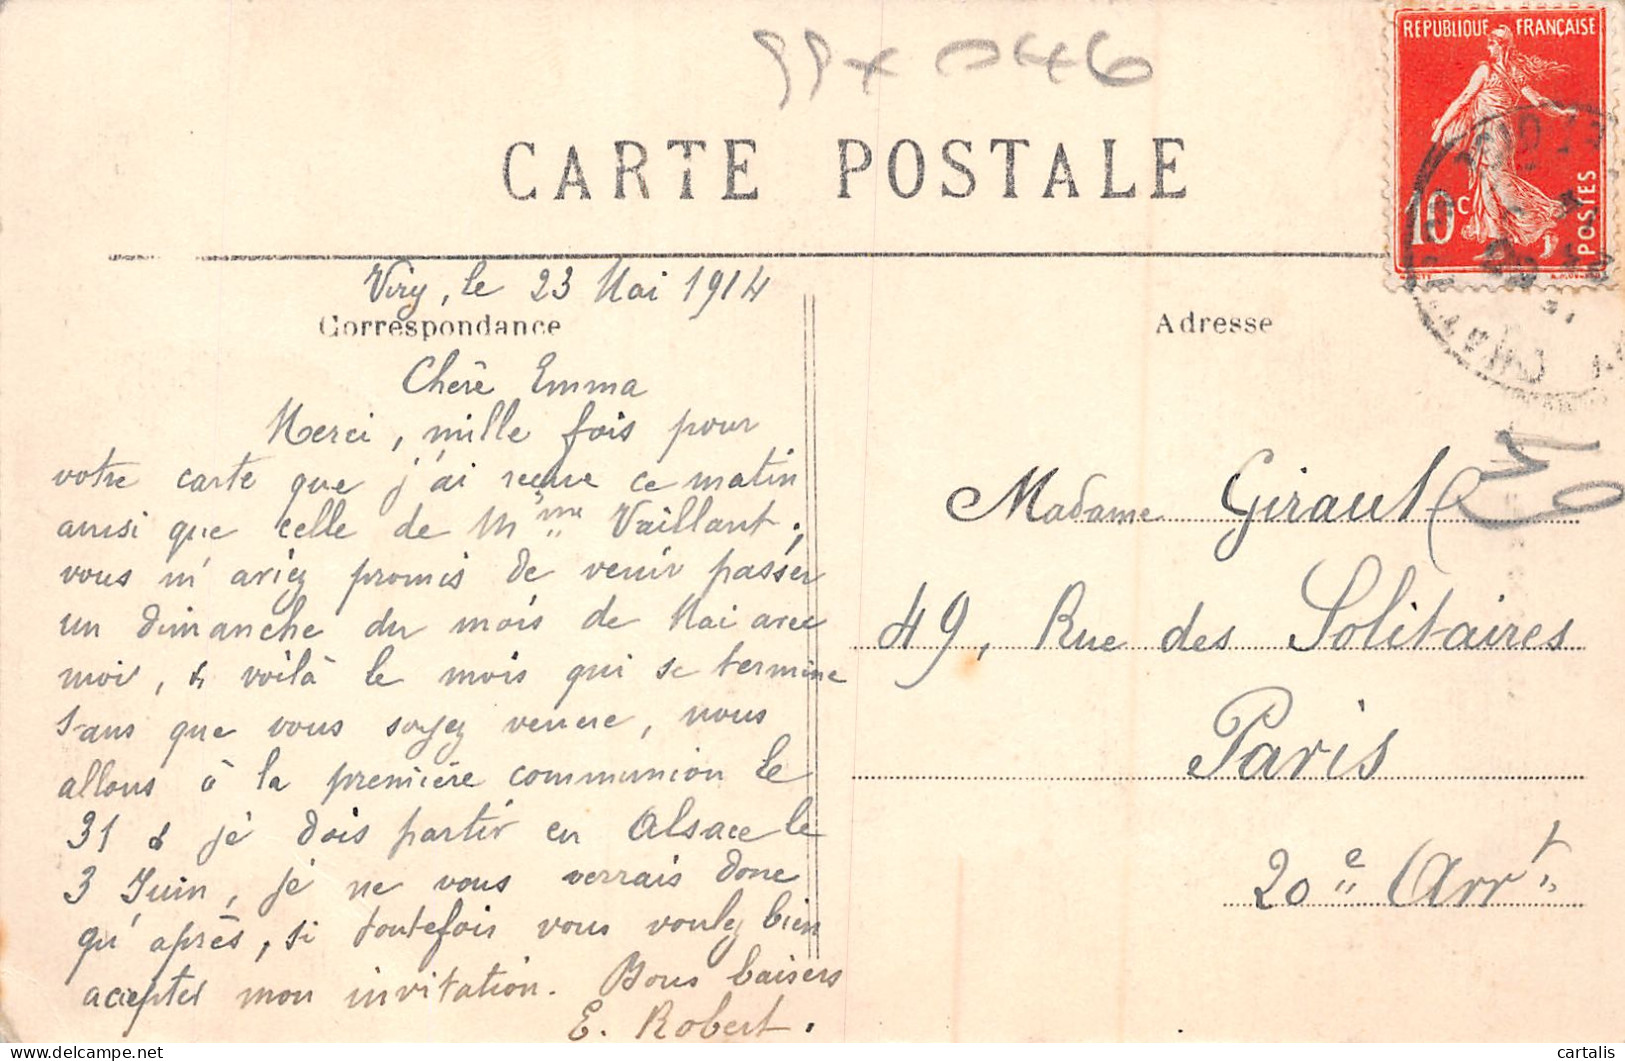 99x 046
REPUBLIQUE FRANÇAISE
10c
POSTES
CARTE POSTALE
Viry, le 23 Mai 1914
Correspondance
Chère Emma
Merci, mille fois pour
votre carte que j'ai reçue ce matin
ainsi que celle de Mme Vaillant,
vous m'aviez promis de venir passer
un dimanche du mois de Mai avec
moi, & voilà le mois qui se termine
sans que vous soyez venue, nous
allons à la première communion le
31 & je dois partir en Alsace le
3 Juin, je ne vous verrais donc
qu'après, si toutefois vous voulez bien
accepter mon invitation. Bons baisers
E. Robert.
Adresse
Madame Girault
49, Rue des Solitaires
Paris
20e Arrt
cartalis